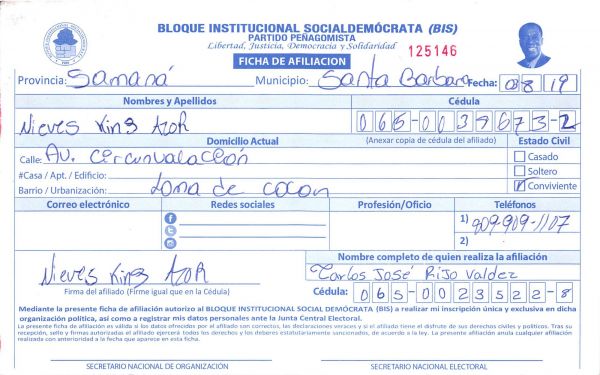 BLOQUE INSTITUCIONAL SOCIALDEMÓCRATA (BIS)
PARTIDO PEÑAGOMISTA
Libertad, Justicia, Democracia y Solidaridad
FICHA DE AFILIACION
125146
Provincia: Samaná Municipio: Santa Barbara Fecha: 08 19
Nombres y Apellidos Cédula
Nieves King Azor 065-0039673-2
Domicilio Actual (Anexar copia de cédula del afiliado) Estado Civil
Calle: Av. Circunvalación Casado
#Casa / Apt. / Edificio: Soltero
Barrio / Urbanización: Loma de cocon Conviviente
Correo electrónico Redes sociales Profesión/Oficio Teléfonos
1) 809-909-1107
2)
Nieves King Azor
Firma del afiliado (Firme igual que en la Cédula)
Nombre completo de quien realiza la afiliación
Carlos José Rijo Valdez
Cédula: 065-0023522-8
Mediante la presente ficha de afiliación autorizo al BLOQUE INSTITUCIONAL SOCIAL DEMÓCRATA (BIS) a realizar mi inscripción única y exclusiva en dicha
organización política, así como a registrar mis datos personales ante la Junta Central Electoral.
La presente ficha de afiliación es válida si los datos ofrecidos por el afiliado son correctos, las declaraciones veraces y si el afiliado tiene el disfrute de sus derechos civiles y políticos. Tras su
recepción, sello y firmas autorizadas el afiliado ejercerá todos los derechos y los deberes estatutariamente sancionados, de acuerdo a la ley. La presente afiliación anula cualquier afiliación
realizada con anterioridad a la fecha que aparece en esta ficha.
SECRETARIO NACIONAL DE ORGANIZACIÓN SECRETARIO NACIONAL ELECTORAL